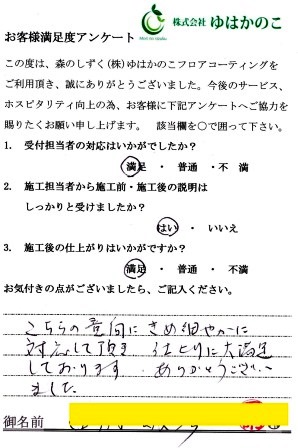 株式会社 ゆはかのこ
お客様満足度アンケート
この度は、森のしずく(株)ゆはかのこフロアコーティングを
ご利用頂き、誠にありがとうございました。今後のサービス、
ホスピタリティ向上の為、お客様に下記アンケートへご協力を
賜りたくお願い申し上げます。 該当欄を〇で囲って下さい。
1. 受付担当者の対応はいかがでしたか？
満足 ・ 普通 ・ 不満
2. 施工担当者から施工前・施工後の説明は
しっかりと受けましたか？
はい ・ いいえ
3. 施工後の仕上がりはいかがですか？
満足 ・ 普通 ・ 不満
お気付きの点がございましたら、ご記入ください。
こちらの意向にきめ細やかに
対応して頂き 仕上りに大満足
しております。ありがとうござい
ました。
御名前